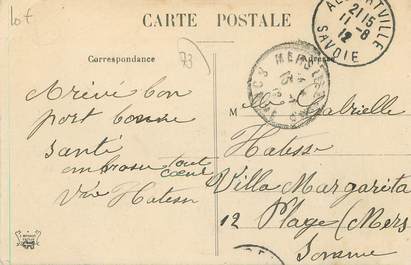 lot
CARTE POSTALE
Correspondance
Adresse
73
ALBERTVILLE
21 15
11-8
12
SAVOIE
MERS
Arivé bon
port bonne
santé
embrasse tout
cœur
Vve Hatesse
Melle Gabrielle
Hatesse
Villa Margarita
12 Plage (Mers
Somme